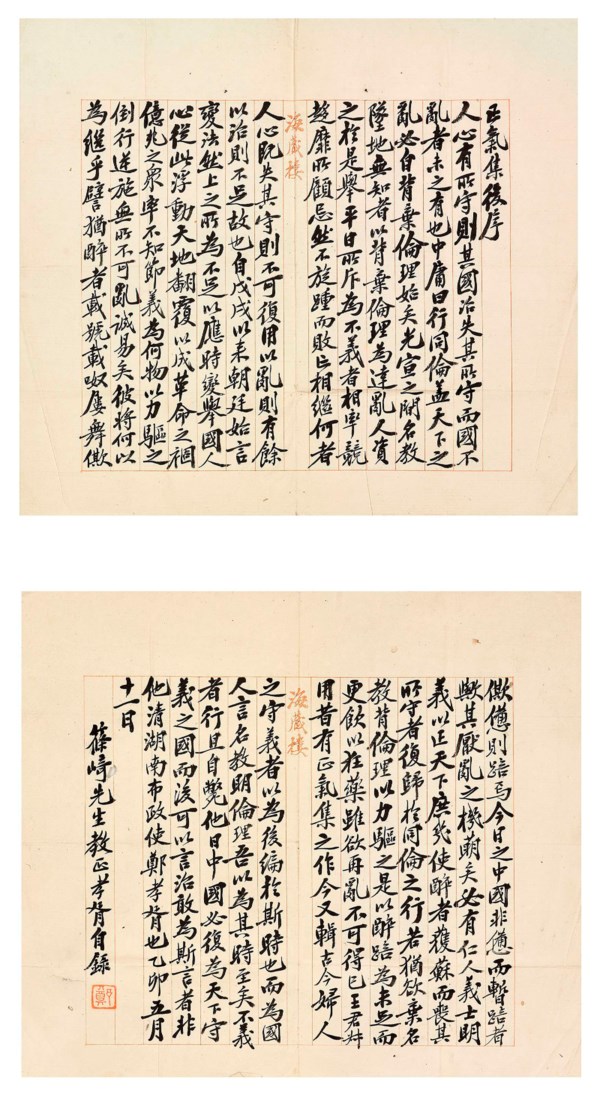 正氣集後序
人心有所守則其國治失其所守而國不
亂者未之有也中庸曰行同倫蓋天下之
亂必自背棄倫理始矣光宣之間名教
墜地無知者以背棄倫理為達亂人資
之於是舉平日所斥為不義者相率競
趨靡所顧忌然不旋踵而敗亡相繼何者
海藏樓
人心既失其守則不可復用以亂則有餘
以治則不足故也自戊戌以來朝廷始言
變法然上之所為不足以應時變舉國人
心從此浮動天地翻覆以成革命之禍
億兆之衆率不知節義為何物以力驅之
倒行逆施無所不可亂誠易矣彼將何以
為繼乎譬猶醉者載號載呶屢舞僛
僛憊則踣焉今日之中國非憊而暫踣者
歟其厭亂之機萌矣必有仁人義士明
義以正天下庶幾使醉者獲蘇而喪其
所守者復歸於同倫之行若猶欲棄名
教背倫理以力驅之是以醉踣為未足而
更飲以狂藥雖欲再亂不可得已王君
用昔有正氣集之作今又輯古今婦人
海藏樓
之守義者以為後編於斯時也而為國
人言名教明倫理吾以為其時至矣不義
者行且自斃他日中國必復為天下守
義之國而後可以言治敢為斯言者非
他清湖南布政使鄭孝胥也乙卯五月
十一日
篠崎先生教正孝胥自錄